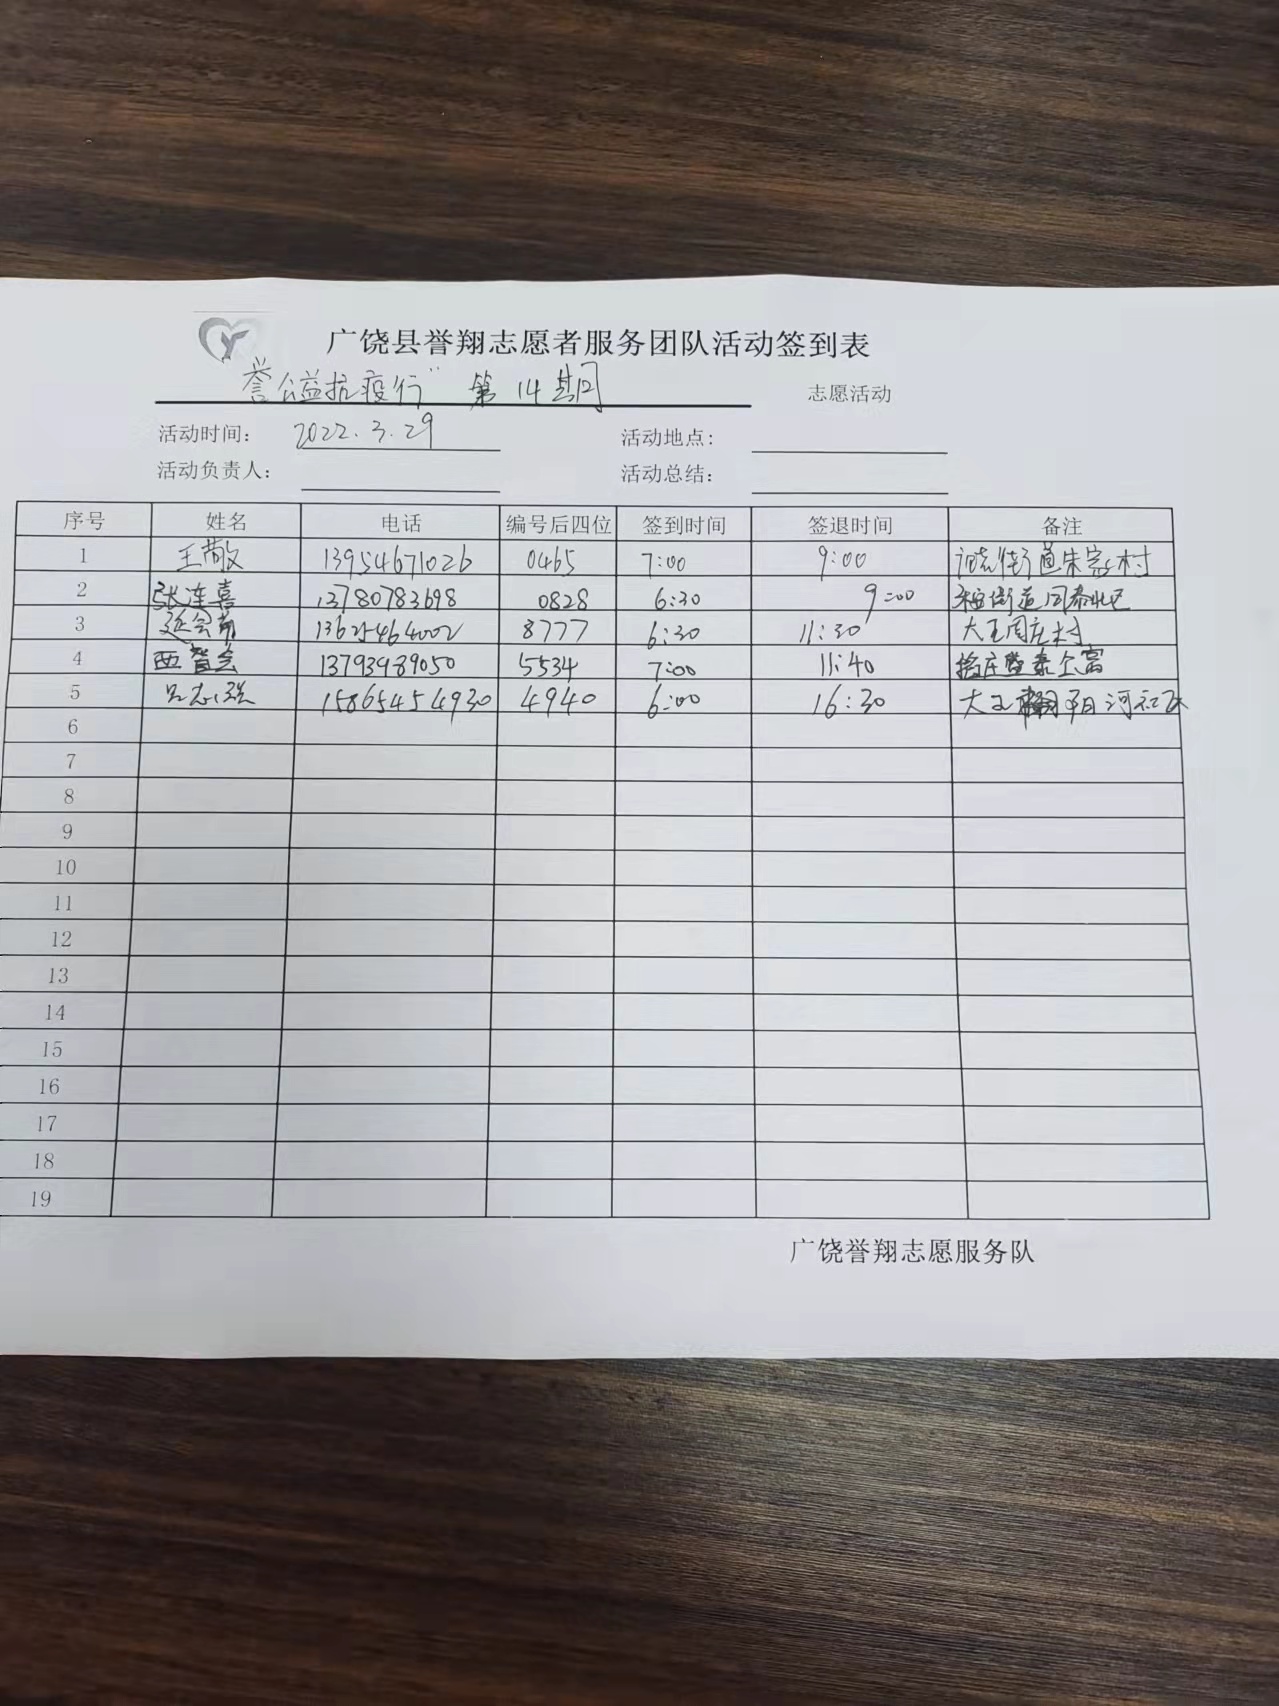 广饶县誉翔志愿者服务团队活动签到表
誉公益抗疫行" 第14期 志愿活动
活动时间: 2022.3.29 活动地点:
活动负责人: 活动总结:
序号 姓名 电话 编号后四位 签到时间 签退时间 备注
1 王敬 13954671026 0465 7:00 9:00 街道朱家村
2 张连喜 13780783698 0828 6:30 9:00 街道
3 延会 13625464002 8777 6:30 11:30 大王周庄村
4 西智会 13793989050 5534 7:00 11:40
5 吕志强 15865454930 4940 6:00 16:30 大王 阳河社区
6
7
8
9
10
11
12
13
14
15
16
17
18
19
广饶誉翔志愿服务队